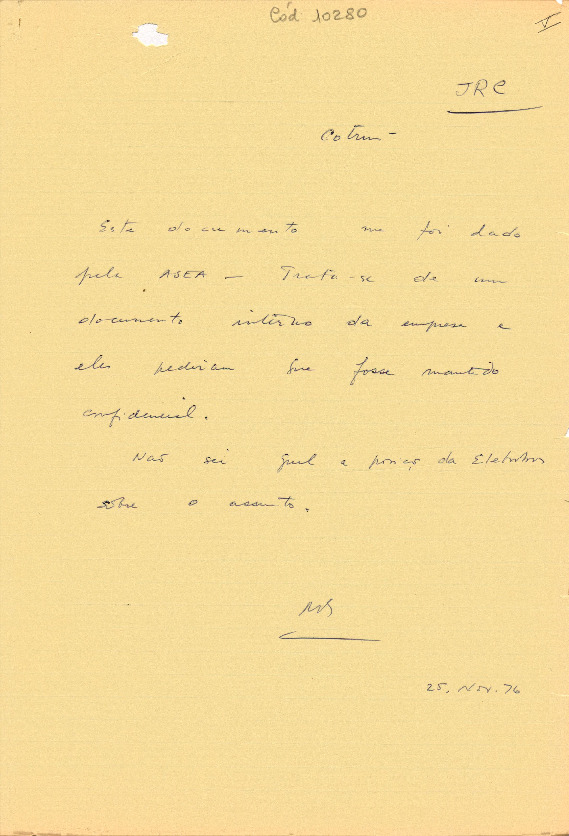 Cód 10280
I
JRC
Cotrim -
Este documento me foi dado
pela ASEA - Trata-se de um
documento interno da empresa e
eles pediram que fosse mantido
confidencial.
Não sei qual a posição da Eletrobras
sobre o assunto.
25. Nov. 76